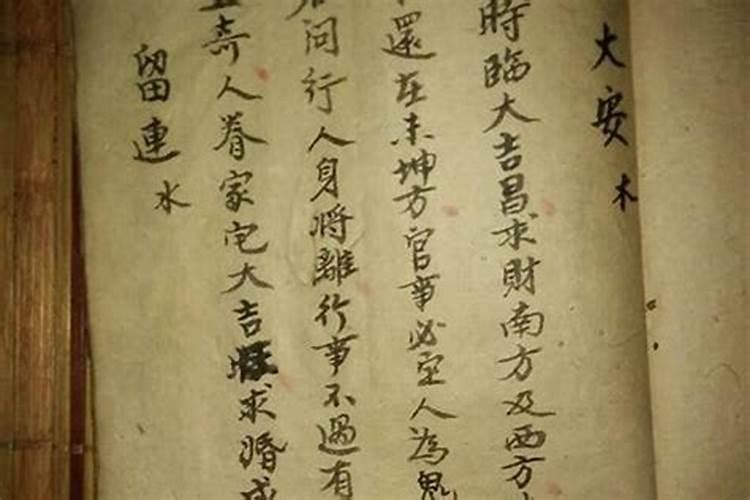 大安木
時臨大吉昌求財南方及西方
還在未坤方官事必空人為鬼
問行人身將離行事不過有
奇人眷家宅大吉求婚成
留連水